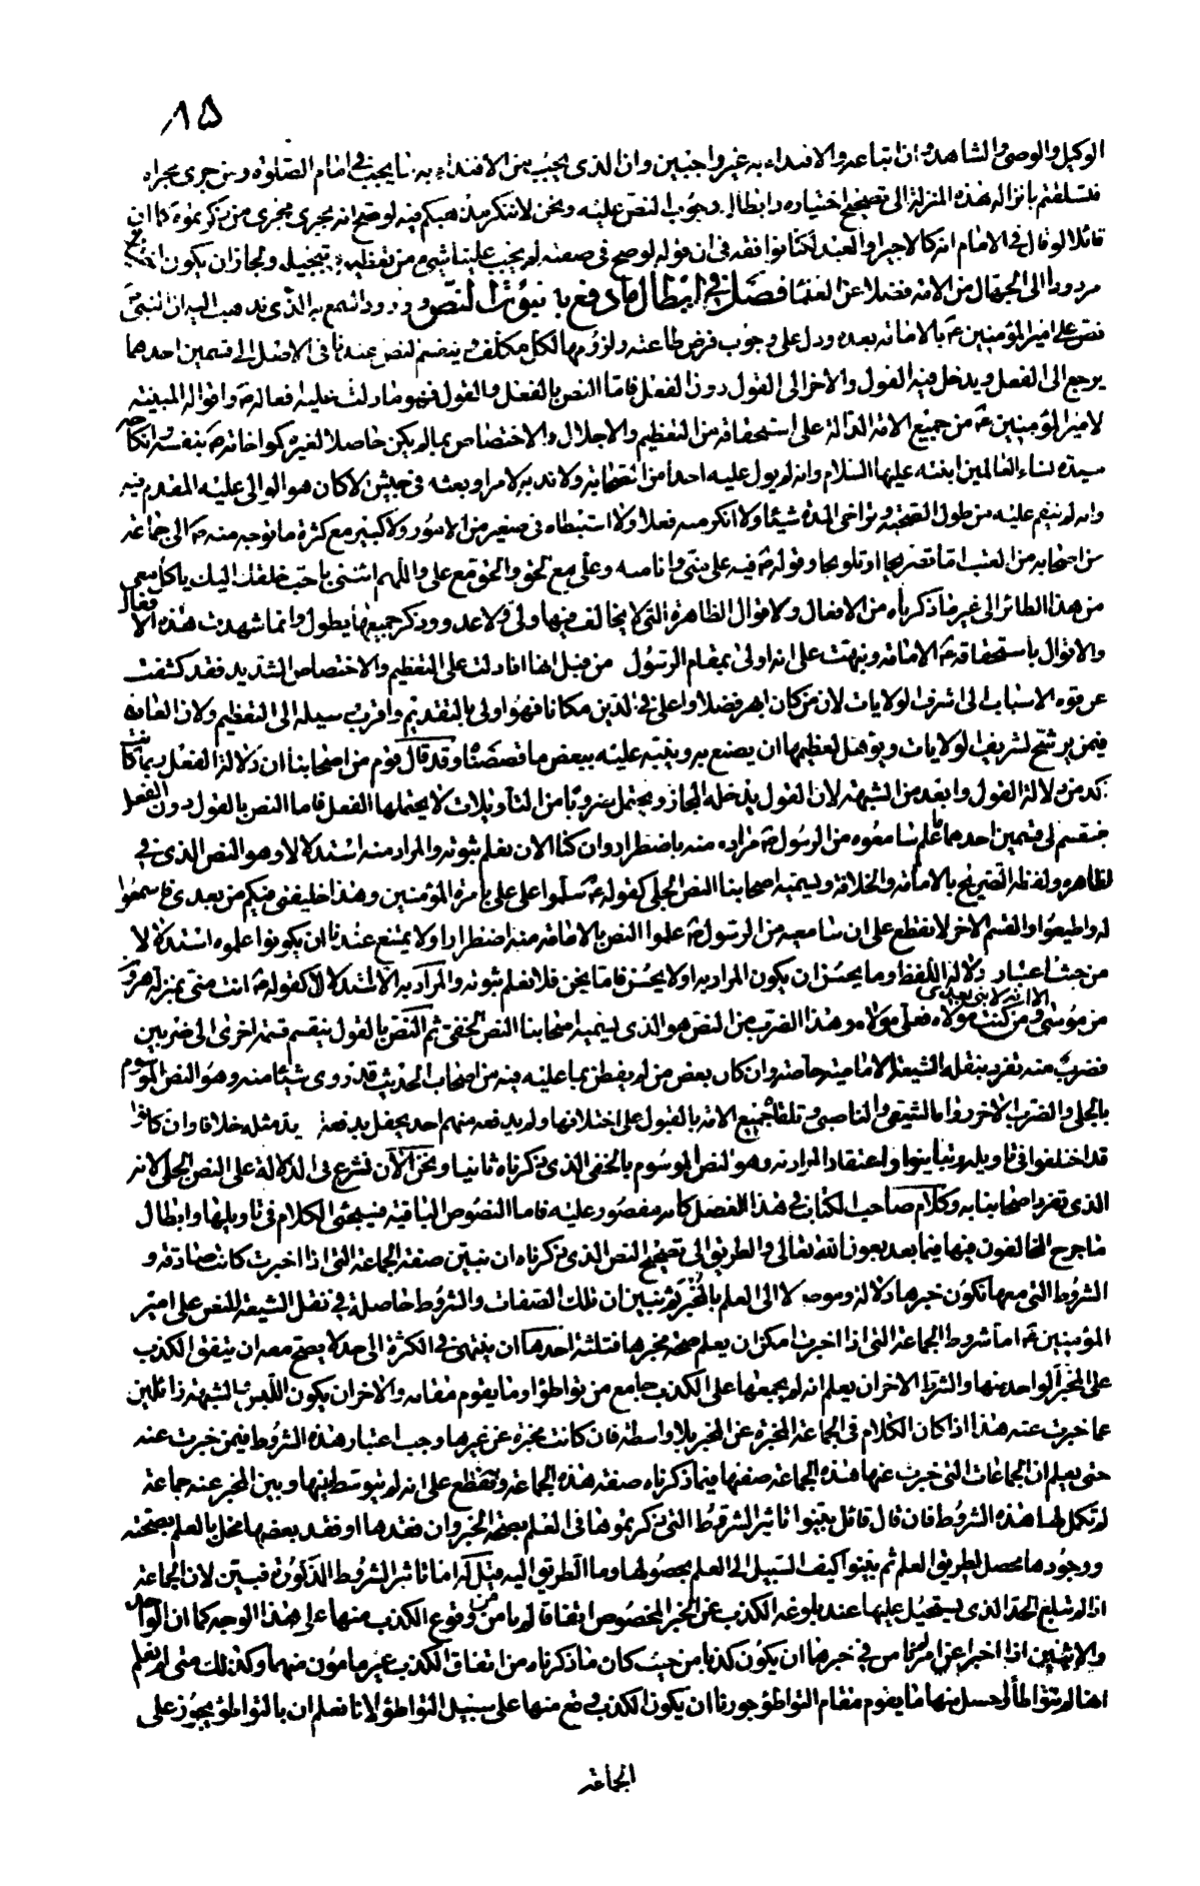 ٨٥
الوكيل والوصى والشاهد فى ان اتباعه والاقتداء به غير واجبين وان الذى يجب من الاقتداء به ما يجب فى امام الصلوة ومن جرى مجراه
فتسلقتم بانزاله هذه المنزلة الى تصحيح اختياره وابطال وجوب النص عليه ونحن لا ننكر من مذهبكم فيه لو صح انه يجرى مجرى من ذكرتموه كما ان
قائلا لو قال فى الامام انه كالاجير او العبد لكنا نوافقه فى ان قوله لو صح فى صفته لم يجب علينا شىء من تعظيمه وتبجيله ولجاز ان يكون اختياره
مردودا الى الجهال من الامة فضلا عن العلماء فصل فى ابطال ما دفع به ثبوت النص وورود السمع به الذى نذهب اليه ان النبى ص
نص على امير المؤمنين ع بالامامة بعده ودل على وجوب فرض طاعته ولزومها لكل مكلف وينقسم النص عندنا فى الاصل الى قسمين احدهما
يرجع الى الفعل ويدخل فيه القول والاخر الى القول دون الفعل فاما النص بالفعل والقول فهو ما دلت عليه افعاله ص واقواله المبينة
لامير المؤمنين ع من جميع الامة الدالة على استحقاقه من التعظيم والاجلال والاختصاص بما لم يكن حاصلا لغيره كمواخاته ص بنفسه وانكاحه
سيدة نساء العالمين ابنته عليها السلام وانه لم يول عليه احدا من الصحابة ولا ندبه لامر او بعثه فى جيش الا كان هو الوالى عليه المقدم فيه
وانه لم ينقم عليه من طول الصحبة وتراخى المدة شيئا ولا انكر منه فعلا ولا استبطاه فى صغير من الامور ولا كبير مع كثرة ما توجه منه ص الى جماعة
من اصحابه من العتب اما تصريحا او تلويحا وقوله ص فيه على منى وانا منه وعلى مع الحق والحق مع على واللهم ائتنى باحب خلقك اليك ياكل معى
من هذا الطائر الى غير ما ذكرناه من الافعال والاقوال الظاهرة التى لا يخالف فيها ولى ولا عدو وذكر جميعها يطول وانما شهدت هذه الافعال
والاقوال باستحقاقه ع الامامة ونبهت على انه اولى بمقام الرسول من قبل انها اذا دلت على التعظيم والاختصاص الشديد فقد كشفت
عن قوة الاسباب الى اشرف الولايات لان من كان ابهر فضلا واعلى فى الدين مكانا فهو اولى بالتقديم واقرب سبيله الى التعظيم ولان العادة
فيمن يرشح لشريف الولايات ويؤهل لعظيمها ان يصنع به وينبه عليه ببعض ما قصصناه وقد قال قوم من اصحابنا ان دلالة الفعل ربما كانت
اكد من دلالة القول وابعد من الشبهة لان القول يدخله المجاز ويحتمل ضروبا من التاويلات لا يحتملها الفعل فاما النص بالقول دون الفعل
ينقسم الى قسمين احدهما علم سامعوه من الرسول ص مراده منه باضطرار وان كنا الان نعلم ثبوته والمراد منه استدلالا وهو النص الذى فى
ظاهره ولفظه التصريح بالامامة والخلافة ويسميه اصحابنا النص الجلى كقوله ع سلموا على على بامرة المؤمنين وهذا خليفتى فيكم من بعدى فاسمعوا
له واطيعوا والقسم الاخر لا نقطع على ان سامعيه من الرسول ص علموا النص بالامامة منه اضطرارا ولا يمتنع عندنا ان يكونوا علموه استدلالا
من حيث اعتبار دلالة اللفظ وما يحسن ان يكون المراد به او لا يحسن فاما نحن فلا نعلم ثبوته والمراد به الا استدلالا كقوله ص انت منى بمنزلة هرون
من موسى الا انه لا نبى بعدى ومن كنت مولاه فعلى مولاه وهذا الضرب من النص هو الذى يسميه اصحابنا النص الخفى ثم النص بالقول ينقسم قسمة اخرى الى ضربين
فضرب منه تفرد بنقله الشيعة الامامية خاصة وان كان بعض من لم يفطن بما عليه فيه من اصحاب الحديث قد روى شيئا منه وهو النص الموسوم
بالجلى والضرب الاخر رواه الشيعى والناصبى وتلقاه جميع الامة بالقبول على اختلافها ولم يدفعه منهم احد يحفل بدفعه يعد مثله خلافا وان كانوا
قد اختلفوا فى تاويله وتباينوا فى اعتقاد المراد به وهو النص الموسوم بالخفى الذى ذكرناه ثانيا ونحن الان نشرع فى الدلالة على النص الجلى لانه
الذى تفرد اصحابنا به وكلام صاحب الكتاب فى هذا الفصل كانه مقصور عليه فاما النصوص الباقية فسيجىء الكلام فى تاويلها وابطال
ما جرح المخالفون فيها فيما بعد بعون الله تعالى والطريق الى تصحيح النص الذى ذكرناه ان نبين صفة الجماعة التى اذا اخبرت كانت صادقة و
الشروط التى معها تكون خبرها دلالة وموصلا الى العلم بالمخبر ثم نبين ان تلك الصفات والشروط حاصلة فى نقل الشيعة للنص على امير
المؤمنين ع اما شروط الجماعة التى اذا اخبرت امكن ان يعلم صحة مخبرها فثلثة احدها ان ينتهى فى الكثرة الى حد لا يصح معه ان يتفق الكذب
على المخبر الواحد منها والشرط الاخر ان يعلم انه لم يجمعها على الكذب جامع من تواطؤ او ما يقوم مقامه والاخر ان يكون اللبس والشبهة زائلين
عما خبرت عنه هذا اذا كان الكلام فى الجماعة المخبرة عن المخبر بلا واسطة فان كانت مخبرة عن غيرها وجب اعتبار هذه الشروط فيمن خبرت عنه
حتى يعلم ان الجماعات التى خبرت عنها هذه الجماعة صفتها فيما ذكرناه صفة هذه الجماعة ونقطع على انه لم يتوسط بينها وبين المخبر عنه جماعة
لم تكمل لها هذه الشروط فان قال قائل بينوا تاثير الشروط التى ذكرتموها فى العلم بصحة الخبر وان فقدها او فقد بعضها مخل بالعلم بصحته
ووجودها محصل لطريق العلم ثم بينوا كيف السبيل الى العلم بحصولها وما الطريق اليه قيل له اما تاثير الشروط المذكورة فبين لان الجماعة
اذا لم تبلغ الحد الذى يستحيل عليها عند بلوغه الكذب عن الخبر المخصوص اتفاقا لم نامن من وقوع الكذب منها على هذا الوجه كما ان الواحد
والاثنين اذا اخبرا عن امر لم نامن فى خبرهما ان يكون كذبا من حيث كان ما ذكرناه من اتفاق الكذب غير مامون منهما وكذلك متى لم نعلم
انها لم تتواطأ او حصل منها ما يقوم مقام التواطؤ جوزنا ان يكون الكذب وقع منها على سبيل التواطؤ لانا نعلم ان بالتواطؤ يجوز على
الجماعة